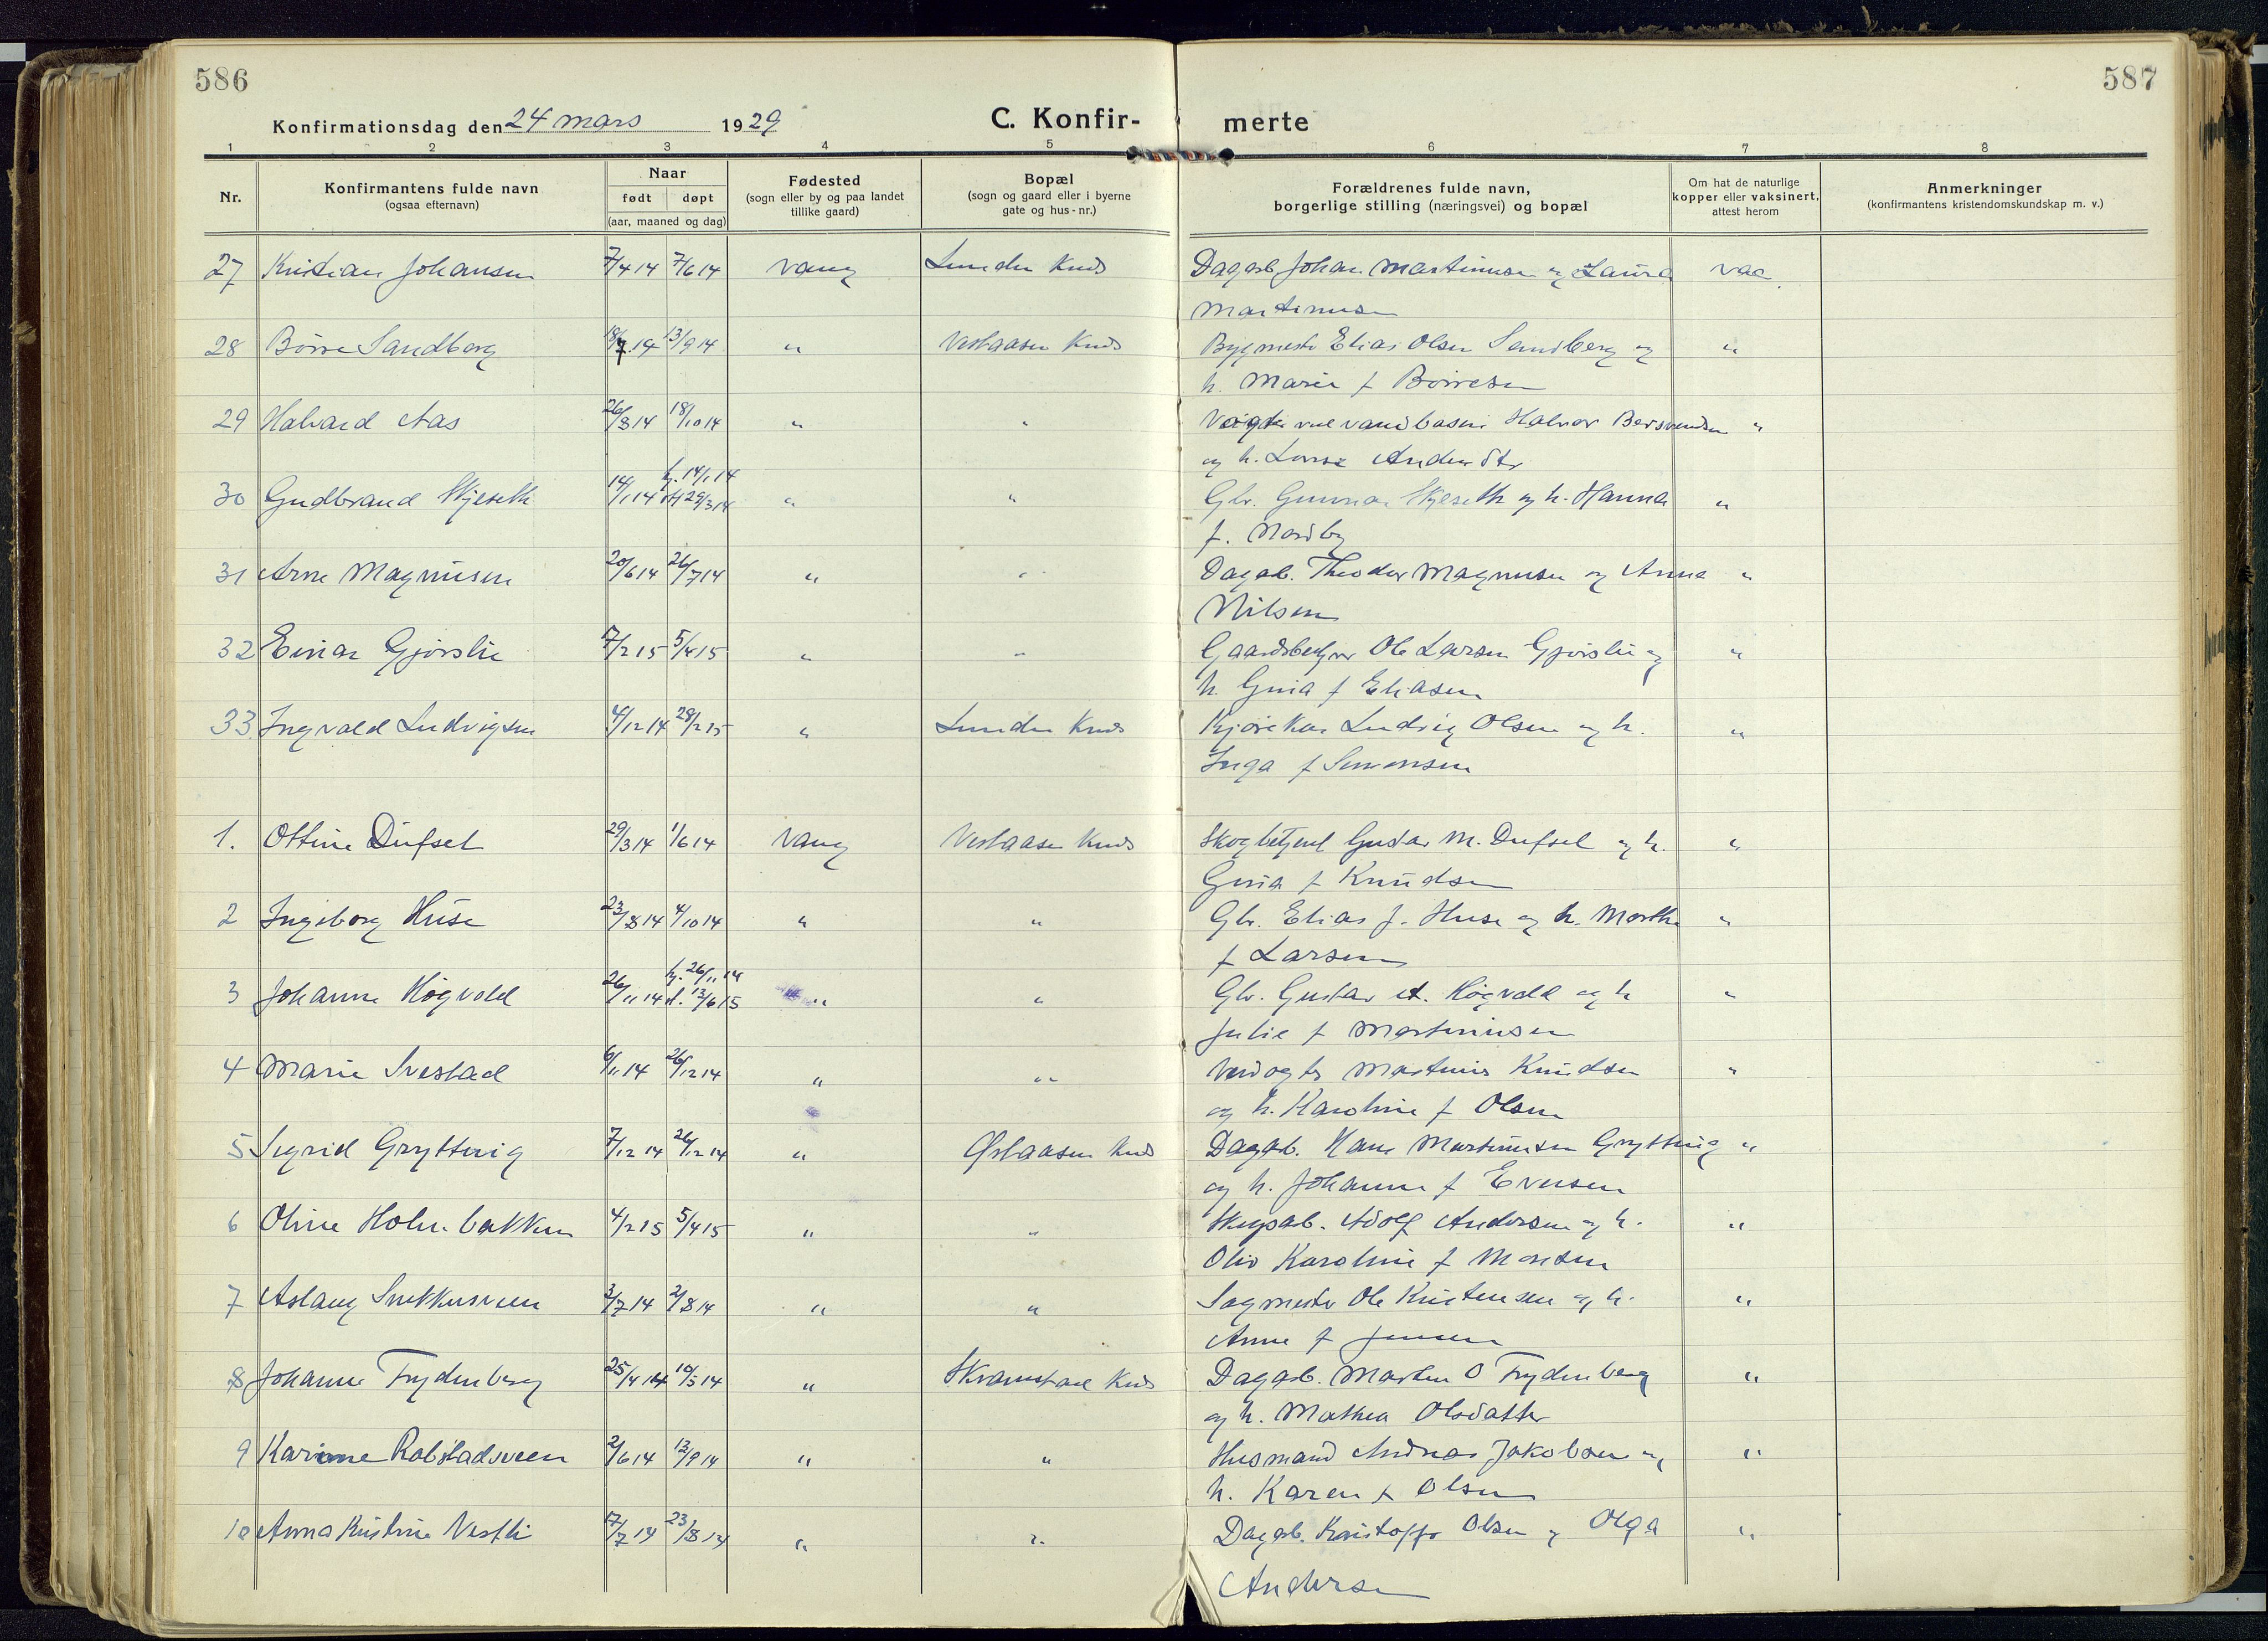 586
587
Konfirmationsdag den 24 mars 1929
C. Konfir-
merte
1 2 3 4 5 6 7 8
Nr.
Konfirmantens fulde navn
(ogsaa efternavn)
Naar
født døpt
(aar, maaned og dag)
Fødested
(sogn eller by og paa landet
tillike gaard)
Bopæl
(sogn og gaard eller i byerne
gate og hus-nr.)
Forældrenes fulde navn,
borgerlige stilling (næringsvei) og bopæl
Om hat de naturlige
kopper eller vaksinert,
attest herom
Anmerkninger
(konfirmantens kristendomskundskap m. v.)
27 Kristian Johansen 7/4 14 7/6 14 Vang Lunden Kreds Dagarb. Johan Martinusen og Laura vac.
Martinusen
28 Börre Sandberg 18/7 14 13/9 14 " Vestaasen Kreds Bygmester Elias Olsen Sandberg og "
h. Marie f Börresen
29 Halvard Aas 26/8 14 18/10 14 " " ved vandbasin Halvor Bersvendsen "
og h. Lovise Andersdtr
hj. 14/1 14
30 Gudbrand Skjeseth 14/1 14 st 29/3 14 " " Gbr. Gunnar Skjeseth og h. Hanna "
f. Nordby
31 Arne Magnusen 20/6 14 26/7 14 " " Dagarb. Theodor Magnusen og Anna "
Nilsen
32 Einar Gjörslie 7/2 15 5/4 15 " " Gaardsbestyrer Ole Larsen Gjörslie og "
h. Gina f Eliasen
33 Ingvald Ludvigsen 4/12 14 28/2 15 " Lunden Kreds Kjörekar Ludvig Olsen og h. "
Inga f Simensen
1. Ottine Dufset 29/3 14 1/6 14 Vang Vestaasen Kreds Skogbetjent Gustav M. Dufset og h. "
Gina f Knudsen
2 Ingeborg Huse 23/8 14 4/10 14 " " Gbr. Elias J. Huse og h. Marthe "
f Larsen
hj. 26/11 14
3 Johanne Högvold 26/11 14 st. 13/6 15 " " Gbr. Gustav A. Högvold og h "
Julie f Martinusen
4 Marie Svestad 6/11 14 26/12 14 " " Martinus Knudsen "
og h. Karoline f Olsen
5 Sigrid Gryttingvig 7/12 14 26/12 14 " Østaasen Kreds Dagarb. Hans Martinusen "
og h. Johanne f Evensen
6 Oline Holmbakken 4/2 15 5/4 15 " " Skogsarb. Adolf Andersen og h. "
Oliv Karoline f Monsen
7 Aslaug Snekkersveen 3/7 14 2/8 14 " " Sagmester Ole Kristensen og h. "
Anne f Jensen
8 Johanne Frydenberg 25/4 14 10/5 14 " Skramstad Kreds Dagarb. Marten O Frydenberg "
og h. Mathea Olsdatter
9 Karinne Robstadsveen 2/6 14 13/9 14 " " Husmand Andreas Jakobsen og "
h. Karen f Olsen
10 Anna Kristine Vestli 17/7 14 23/8 14 " " Dagarb. Kristoffer Olsen og Olga "
Andersen